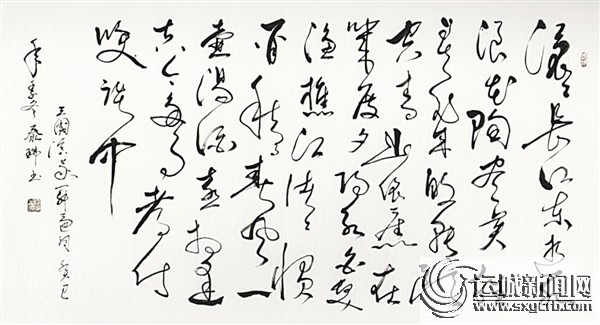 滚滚长江东逝水
浪花淘尽英雄
是非成败转头
空青山依旧在
几度夕阳红白发
渔樵江渚上惯
看秋月春风一
壶浊酒喜相逢
古今多少事都付
笑谈中
三國演义开篇词 癸巳
年季冬 书
运城新闻网
www.sxycrb.com